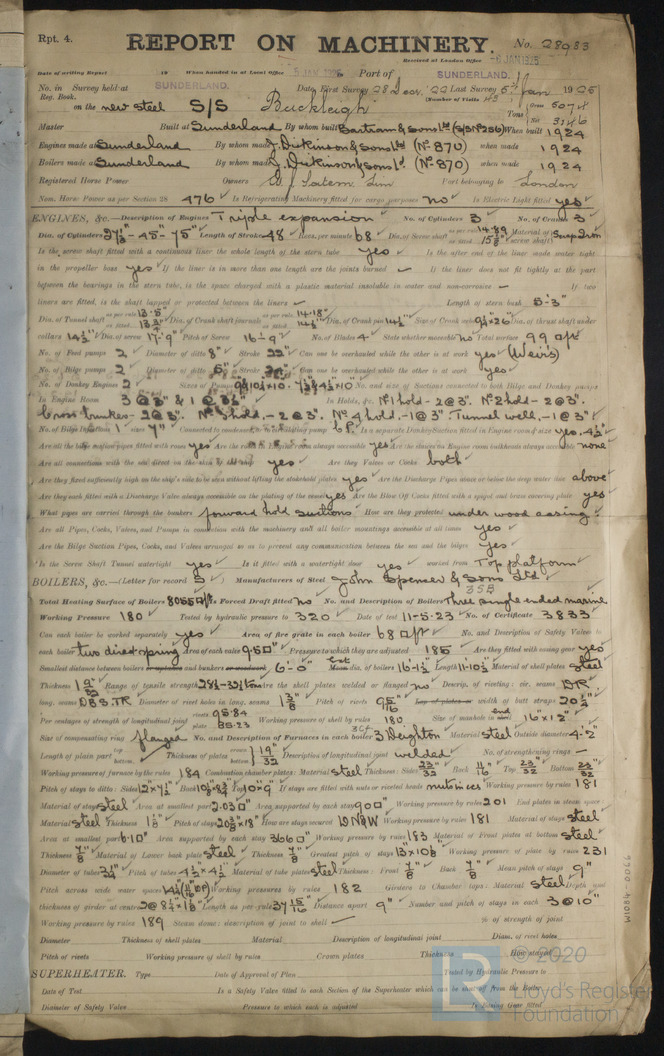 Rpt. 4.
REPORT ON MACHINERY. No. 28983
Received at London Office -6 JAN 1925
Date of writing Report 19 When handed in at Local Office 5 JAN 1925 Port of SUNDERLAND.
No. in Survey held at SUNDERLAND. Date, First Survey Last Survey 19 25
Reg. Book. (Number of Visits 45)
on the new steel S/S Buckleigh Tons Gross 5074 Net 3146
Master Built at Sunderland By whom built Bartram & Sons Ltd (S/S No 256) When built 1924
Engines made at Sunderland By whom made J. Dickinson & Sons Ltd (No 870) when made 1924
Boilers made at Sunderland By whom made J. Dickinson & Sons Ld (No 870) when made 1924
Registered Horse Power Owners W. J. Tatem Lim Port belonging to London
Nom. Horse Power as per Section 28 476 Is Refrigerating Machinery fitted for cargo purposes no Is Electric Light fitted yes
ENGINES, &c.—Description of Engines Triple expansion No. of Cylinders 3 No. of Cranks 3
Dia. of Cylinders 27½"-45"-75" Length of Stroke 48 Revs. per minute 68 Dia. of Screw shaft as per rule 14.89 as fitted 15⅝" Material of screw shaft Scrap Iron
Is the screw shaft fitted with a continuous liner the whole length of the stern tube yes Is the after end of the liner made water tight
in the propeller boss yes If the liner is in more than one length are the joints burned — If the liner does not fit tightly at the part
between the bearings in the stern tube, is the space charged with a plastic material insoluble in water and non-corrosive — If two
liners are fitted, is the shaft lapped or protected between the liners — Length of stern bush 5'-3"
Dia. of Tunnel shaft as per rule 13.5" as fitted Dia. of Crank shaft journals as per rule 14.18" as fitted 14½" Dia. of Crank pin 14½" Size of Crank webs 9¼×26 Dia. of thrust shaft under
collars 14½" Dia. of screw 17'-9" Pitch of Screw 16'-9" No. of Blades 4 State whether moveable no Total surface 99 □ft
No. of Feed pumps 2 Diameter of ditto 8" Stroke 22" Can one be overhauled while the other is at work yes (Weir's)
No. of Bilge pumps 2 Diameter of ditto Stroke Can one be overhauled while the other is at work yes
No. of Donkey Engines 2 Sizes of Pumps No. and size of Suctions connected to both Bilge and Donkey pumps
In Engine Room 3 @ 3" & 1 @ 3½" In Holds, &c. No 1 hold - 2@3". No 2 hold - 2@3".
Cross bunker - 2@3". No 3 hold, - 2@3". No 4 hold. - 1@3" Tunnel well, - 1@3"
No. of Bilge Injections 1 sizes 7" Connected to condenser, or to circulating pump C.P. Is a separate Donkey Suction fitted in Engine room & size yes, 4½"
Are all the bilge suction pipes fitted with roses yes Are the roses in Engine room always accessible yes Are the sluices on Engine room bulkheads always accessible none
Are all connections with the sea direct on the skin of the ship yes Are they Valves or Cocks both
Are they fixed sufficiently high on the ship's side to be seen without lifting the stokehold plates yes Are the Discharge Pipes above or below the deep water line above
Are they each fitted with a Discharge Valve always accessible on the plating of the vessel yes Are the Blow Off Cocks fitted with a spigot and brass covering plate yes
What pipes are carried through the bunkers forward hold suctions How are they protected under wood casing
Are all Pipes, Cocks, Valves, and Pumps in connection with the machinery and all boiler mountings accessible at all times yes
Are the Bilge Suction Pipes, Cocks, and Valves arranged so as to prevent any communication between the sea and the bilges yes
Is the Screw Shaft Tunnel watertight yes Is it fitted with a watertight door yes worked from Top platform
BOILERS, &c.—(Letter for record S) Manufacturers of Steel John Spencer & Sons Ltd
Total Heating Surface of Boilers 8055 □ft Is Forced Draft fitted no No. and Description of Boilers Three single ended marine
Working Pressure 180 Tested by hydraulic pressure to 320 Date of test 11-5-23 No. of Certificate 3833
Can each boiler be worked separately yes Area of fire grate in each boiler 68 □ft No. and Description of Safety Valves to
each boiler two direct spring Area of each valve 9.62 □" Pressure to which they are adjusted 185 Are they fitted with easing gear yes
Smallest distance between boilers or uptakes and bunkers or woodwork 6'-0" Mean dia. of boilers 16'-1½" Length 11'-10½" Material of shell plates steel
Thickness 1 9/32 Range of tensile strength 28½-32 tons Are the shell plates welded or flanged no Descrip. of riveting: cir. seams DR
long. seams DBS.TR Diameter of rivet holes in long. seams 1 3/8" Pitch of rivets 9 5/16" Lap of plates or width of butt straps
Per centages of strength of longitudinal joint rivets 95.84 plate 85.23 Working pressure of shell by rules 180 Size of manhole in end 16×12"
Size of compensating ring flanged No. and Description of Furnaces in each boiler 3 Deighton Material steel Outside diameter 4'-2"
Length of plain part top bottom Thickness of plates crown bottom 19"/32 Description of longitudinal joint welded No. of strengthening rings —
Working pressure of furnace by the rules 184 Combustion chamber plates: Material steel Thickness: Sides 23/32 Back 11/16 Top 23/32 Bottom 23/32
Pitch of stays to ditto: Sides Back Top 10×9" If stays are fitted with nuts or riveted heads nuts in cc Working pressure by rules 181
Material of stays steel Area at smallest part 2.030" Area supported by each stay 90 □" Working pressure by rules 201 End plates in steam space
Material steel Thickness 1⅛" Pitch of stays How are stays secured DN&W Working pressure by rules 181 Material of stays steel
Area at smallest part Area supported by each stay Working pressure by rules 183 Material of Front plates at bottom steel
Thickness 7/8" Material of Lower back plate steel Thickness 7/8" Greatest pitch of stays Working pressure of plate by rules 231
Diameter of tubes 3¼" Pitch of tubes 4½×4½ Material of tube plates steel Thickness: Front Back 7/8" Mean pitch of stays 9"
Pitch across wide water spaces Working pressures by rules 182 Girders to Chamber tops: Material steel Depth and
thickness of girder at centre Length as per rule Distance apart 9" Number and pitch of stays in each 3@10"
Working pressure by rules 189 Steam dome: description of joint to shell — % of strength of joint
Diameter Thickness of shell plates Material Description of longitudinal joint Diam. of rivet holes
Pitch of rivets Working pressure of shell by rules Crown plates Thickness How stayed
SUPERHEATER. Type Date of Approval of Plan Tested by Hydraulic Pressure to
Date of Test Is a Safety Valve fitted to each Section of the Superheater which can be shut off from the Boiler
Diameter of Safety Valve Pressure to which each is adjusted Is Easing Gear fitted
© 2020
LR
Lloyd's Register
Foundation